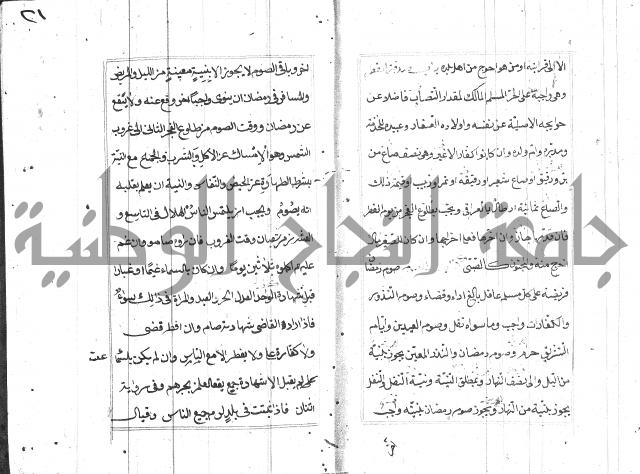 ٢١
الا الى قرابته او من هو احوج من اهل بلده
وهي واجبة على الحر المسلم المالك لمقدار النصاب فاضلا عن
حوايجه الاصلية عن نفسه واولاده الصغار وعبيده للخدمة
ومدبره وام ولده وان كانوا كفارا لا غير وهو نصف صاع من
بر او دقيق او صاع شعير او دقيقه او تمر او زبيب وقيمة ذلك
والصاع ثمانية ارطال بالعراقي وتجب بطلوع الفجر من يوم الفطر
فان قدم جاز وان اخر فعليه اخراجها وان كان للصغير مال
اخرج منه والمجنون كالصبي صوم رمضان
فريضة على كل مسلم عاقل بالغ اداء وقضاء وصوم النذور
والكفارات واجب وما سواه نفل وصوم العيدين وايام
التشريق حرام وصوم رمضان والنذر المعين يجوز بنية
من الليل والى نصف النهار وبمطلق النية وبنية النفل والنفل
يجوز بنية من النهار ويجوز صوم رمضان بنية واجب
اخر وباقي الصوم لا يجوز الا بنية معينة من الليل والمريض
والمسافر في رمضان ان ينوي واجبا اخر وقع عنه والا يقع
عن رمضان ووقت الصوم من طلوع الفجر الثاني الى غروب
الشمس وهو الامساك عن الاكل والشرب والجماع مع النية
بشرط الطهارة عن الحيض والنفاس والنية ان يعلم بقلبه
انه يصوم ويجب ان يلتمس الناس الهلال في التاسع و
العشرين من شعبان وقت الغروب فان راوه صاموا وان غم
عليهم اكملوه ثلاثين يوما وان كان بالسماء غيما او غبار
قبل شهادة الواحد العدل الحر والعبد والمراة في ذلك سواء
فاذا رد القاضي شهادته صام وان افطر قضى
ولا كفارة عليه ولا يفطر الا مع الناس وان لم يكن بالسما
علة لم يقبل الا شهادة جمع يقع العلم بخبرهم وفي رواية
اثنان فاذا ثبتت في بلد لزم جميع الناس وقيل
جامعة النجاح الوطنية